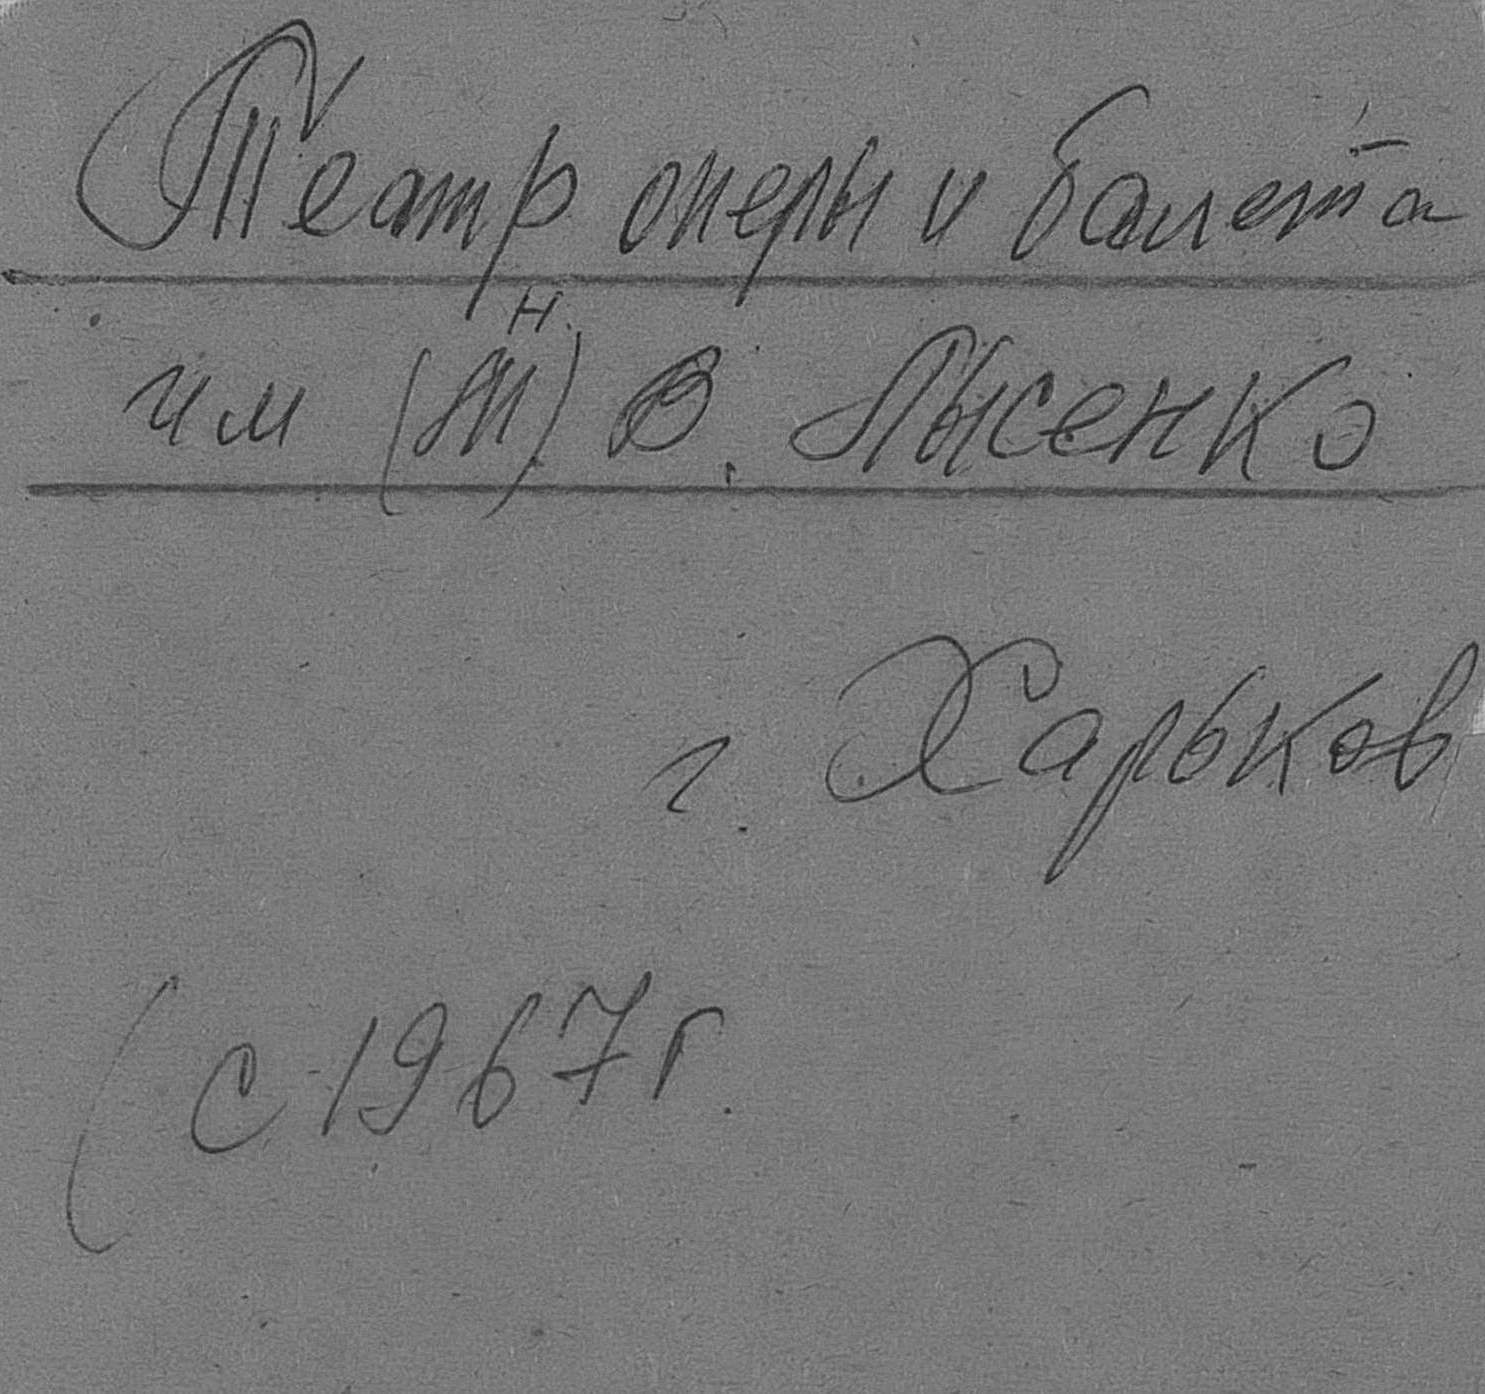 Театр оперы и балета
Н.
им (М) В. Лысенко
г. Харьков
(с 1967 г.